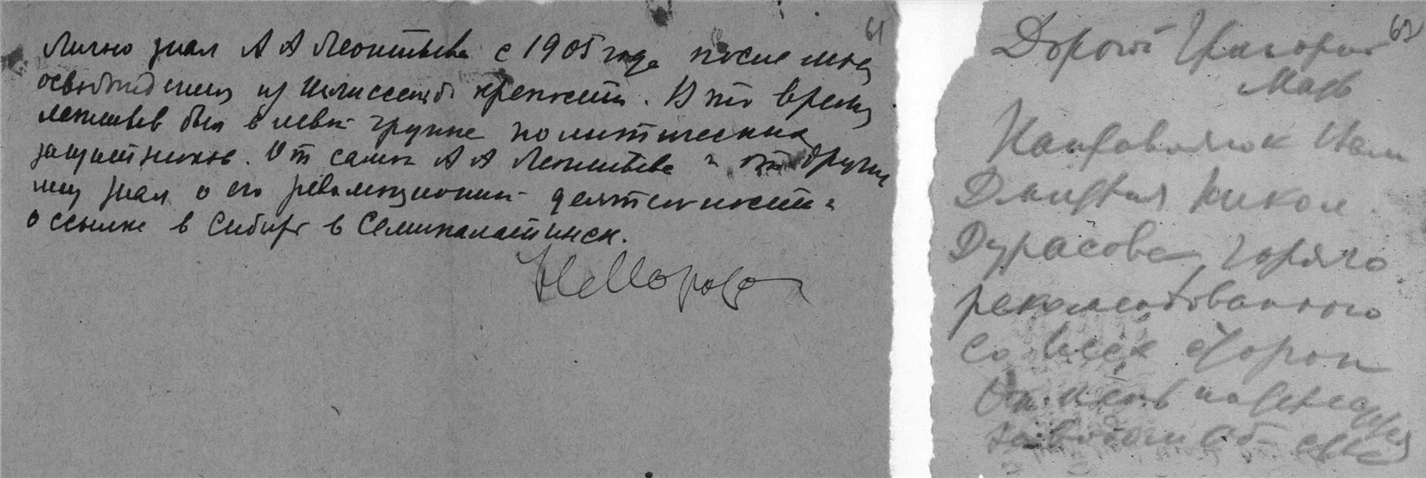 61
Лично знал А А Леонтьева с 1905 года после моего
освобождения из Шлиссельб. крепости. В то время
Леонтьев был в левой группе политических
защитников. От самого А А Леонтьева и от других
лиц знал о его революционной деятельности и
о ссылке в Сибирь в Семипалатинск.
НМорозов
62
Дорогой Григорий
Направляю к Вам
Дмитрия Никол.
Дурасова, горячо
рекомендованного
со всех сторон